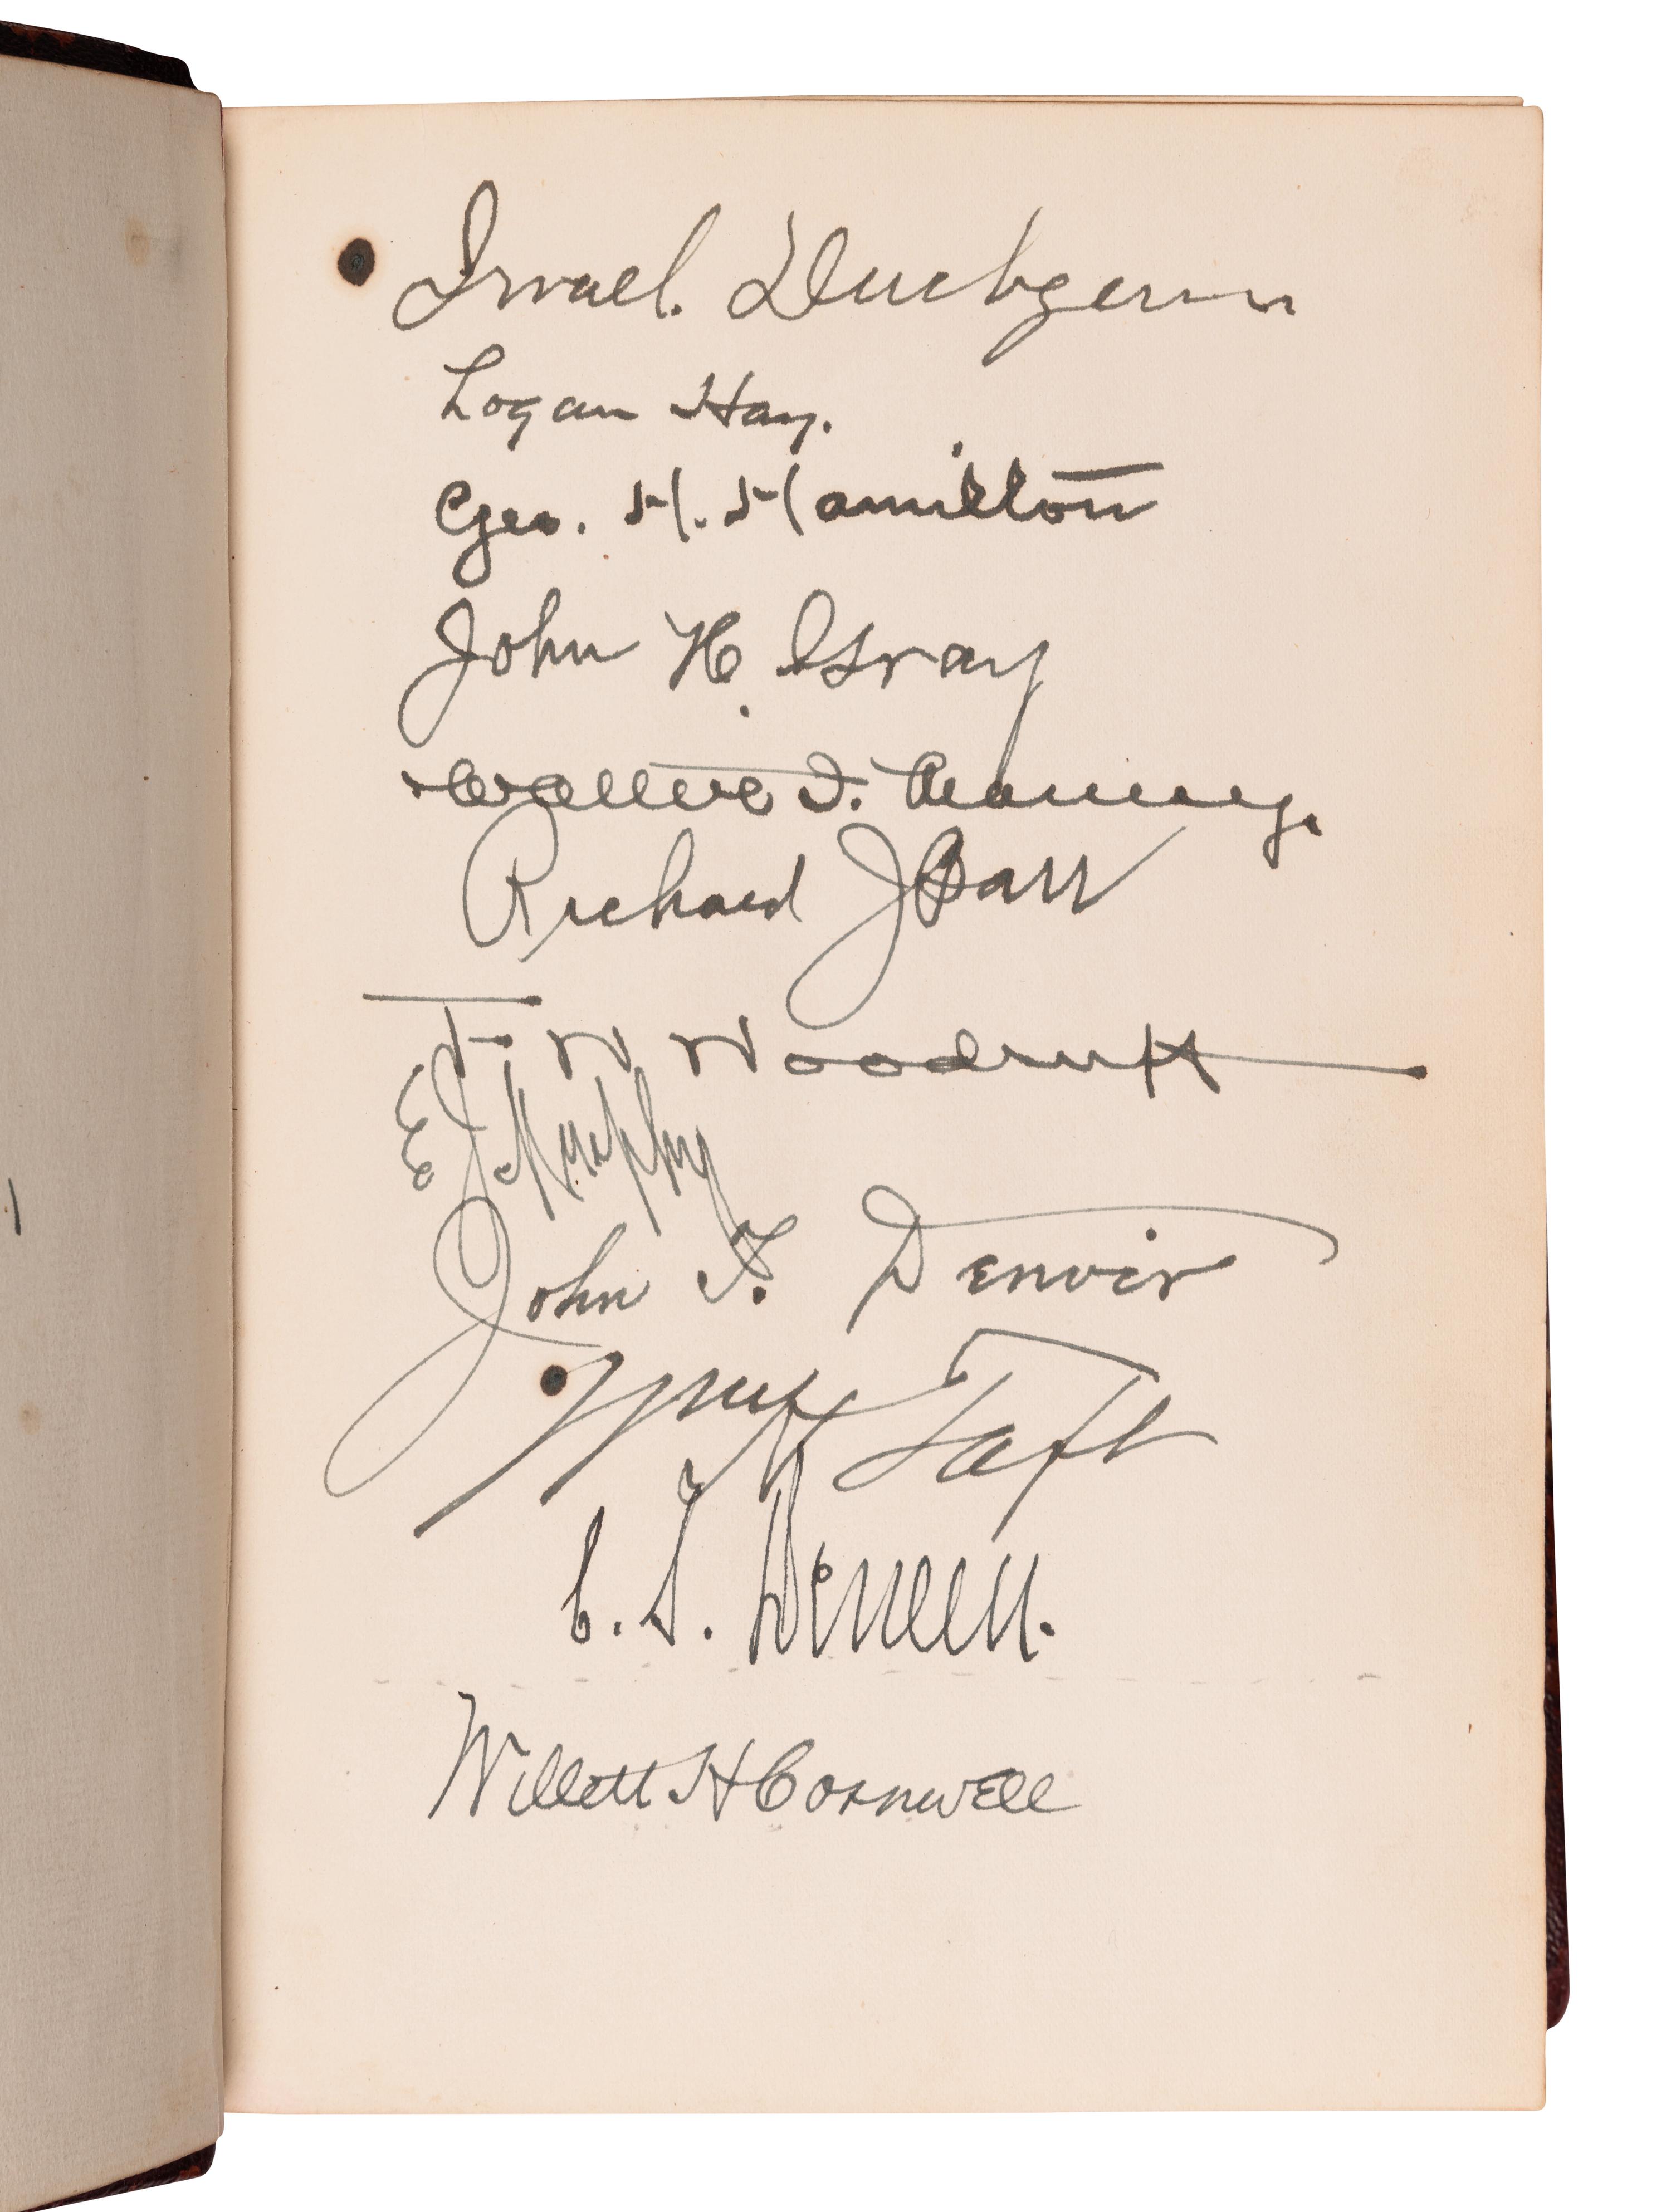 Israel. Dudgeon
Logan Hay.
Geo. H. Hamilton
John H. Gray
Walter I. Manny.
Richard J Barr
T N Woodruff
E J Murphy
John T. Denvir
Wm H Taft
C. S. Deneen.
Willett H Cornwell